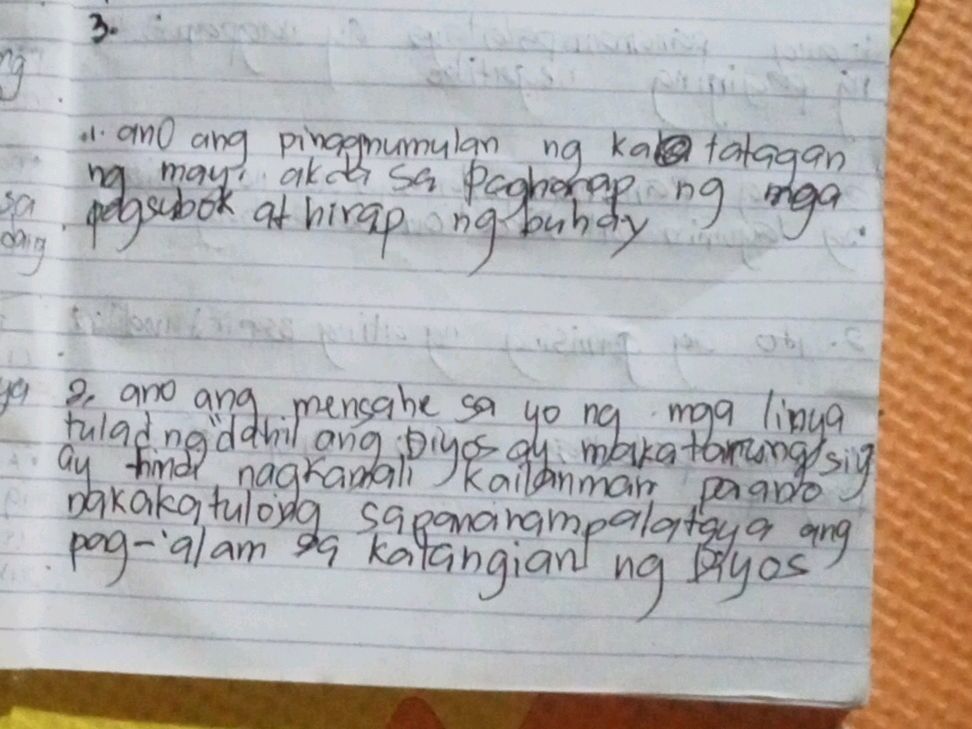 3.
ng
.1. anO ang pinagmumulan ng ka tatagan
ng may. akda sa Pagharap ng mga
sa
pagsubok at hirap ng buhay
dang
ya
2. ano ang mensahe sa yo ng mga linya
tulad ng "dahil ang Diyos ay makatarung/siy
ay hindi nagkamali kailanman paano
nakakatulong sapananampalataya ang
pag-alam sa katangian ng Diyos